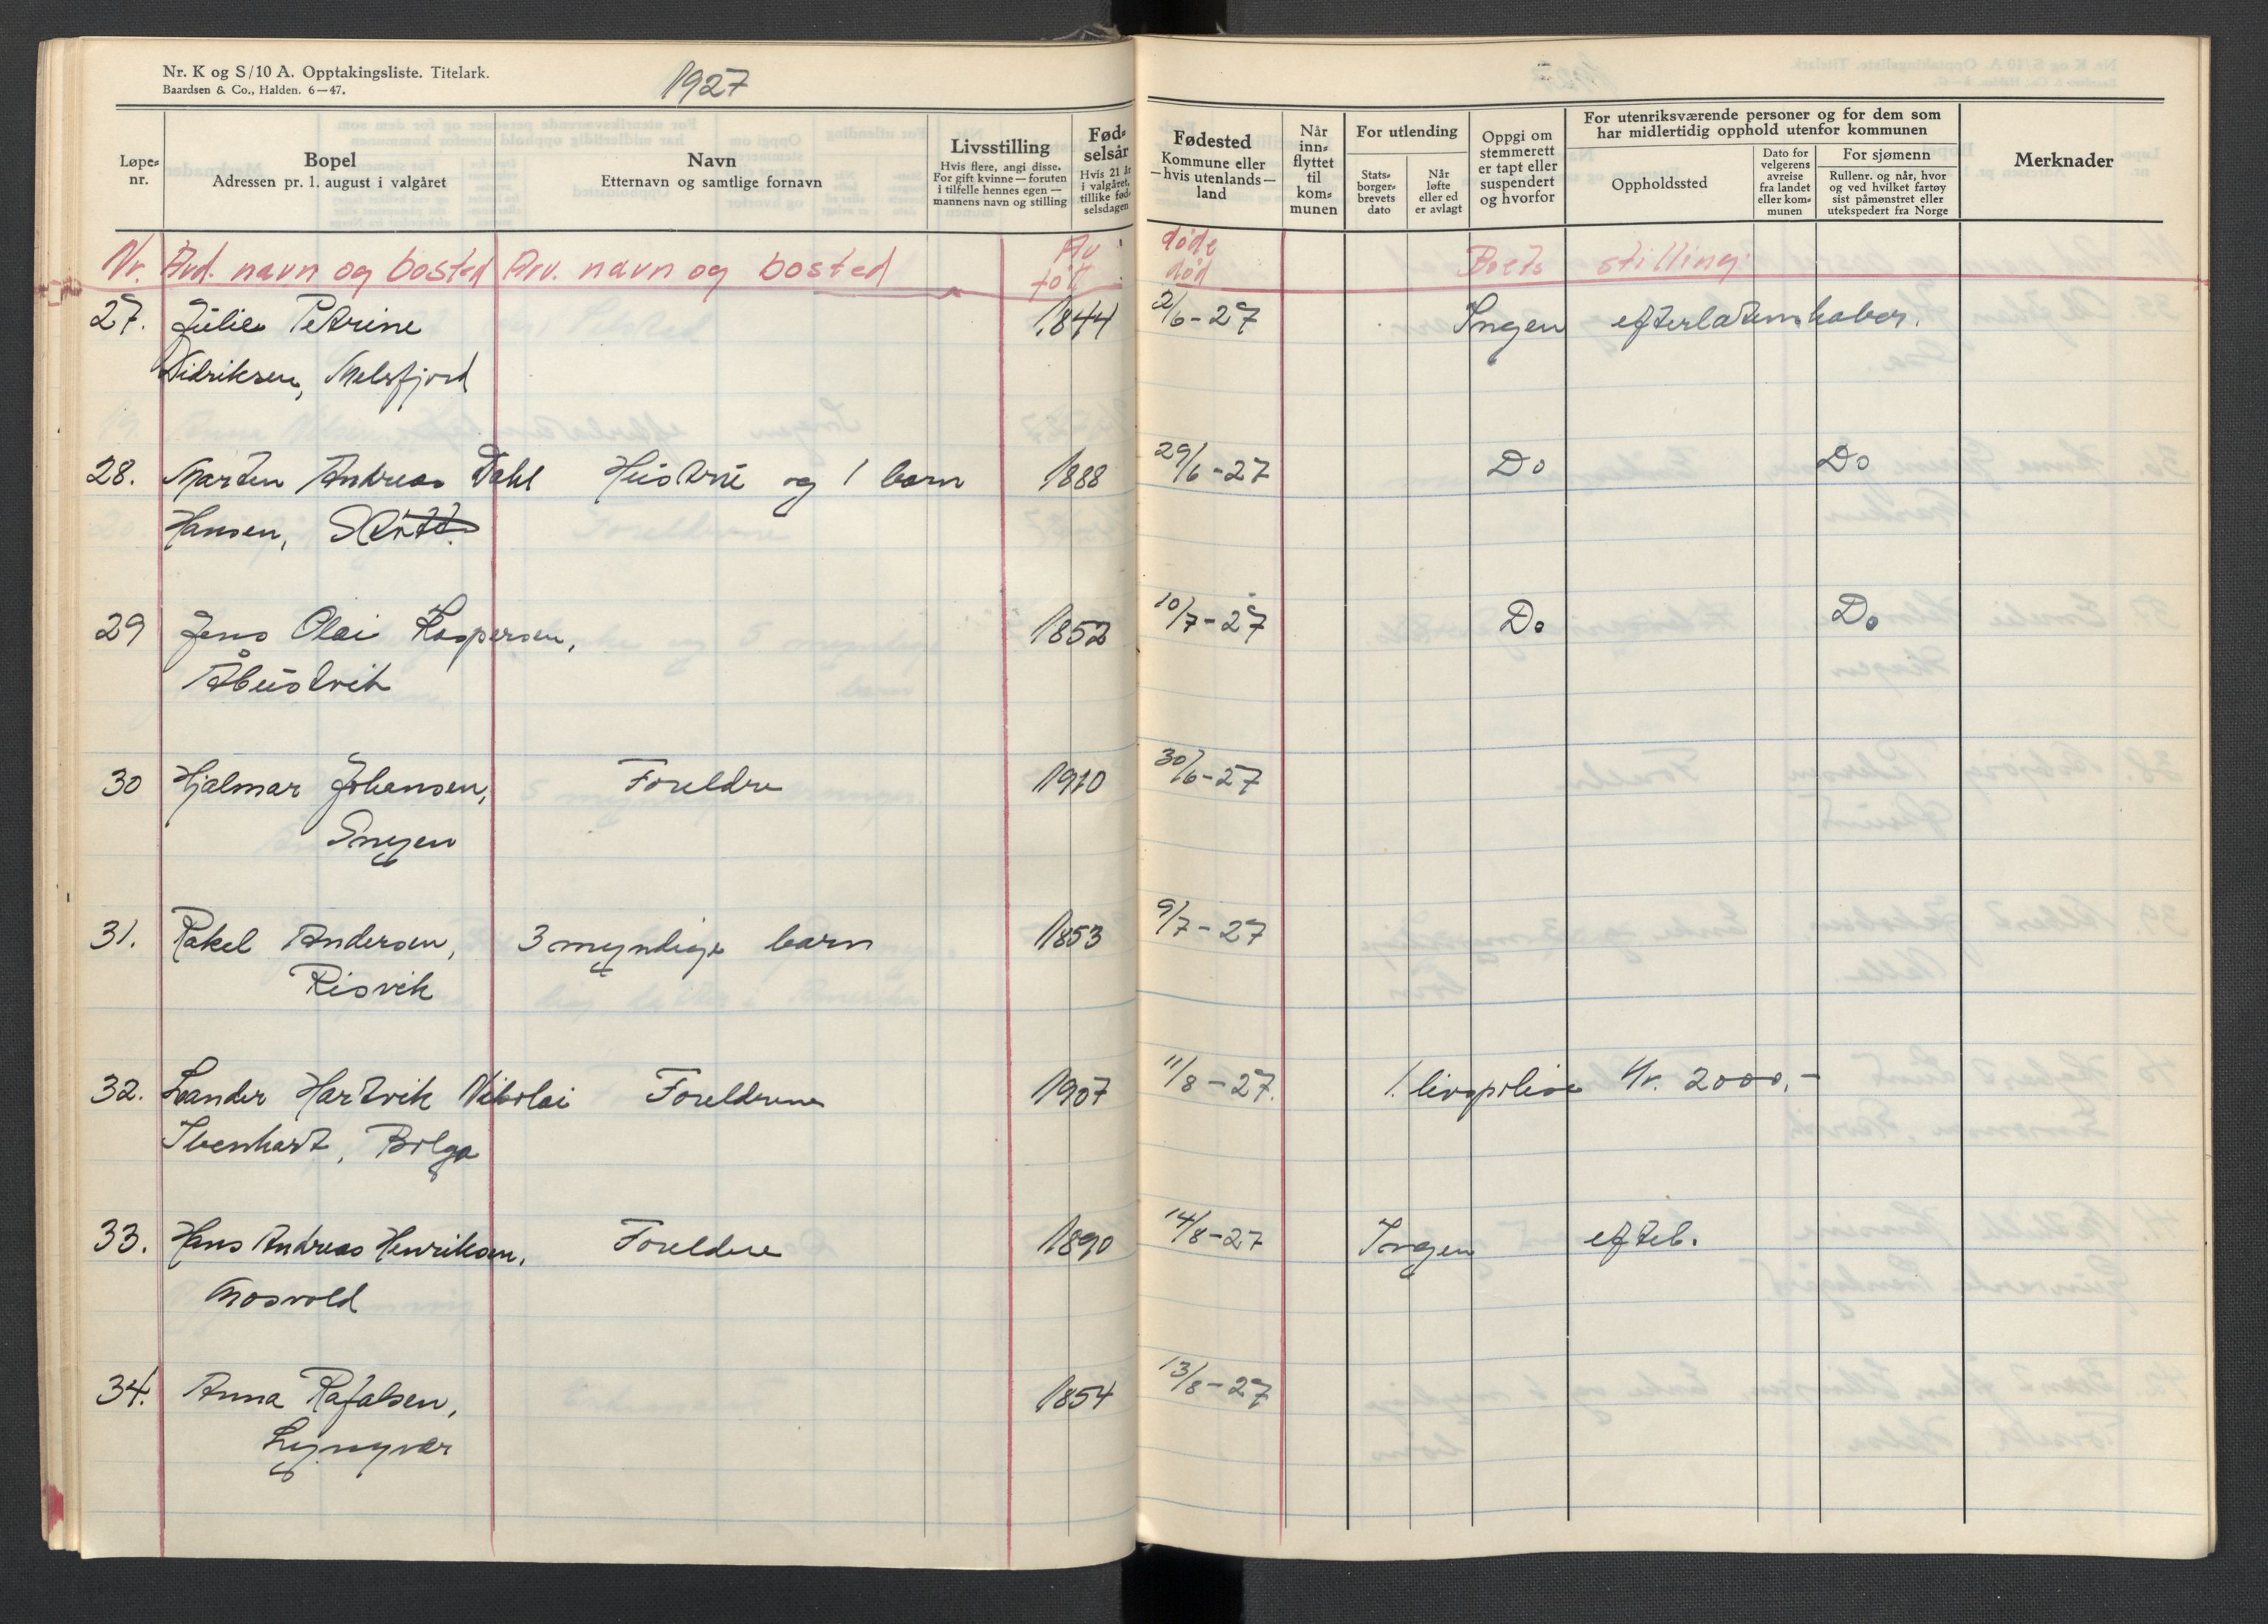 Nr. K og S/10 A. Opptakingsliste. Titelark.
Baardsen & Co., Halden. 6—47.
1927
Løpe-
nr.
Bopel
Adressen pr. 1. august i valgåret
Navn
Etternavn og samtlige fornavn
Livsstilling
Hvis flere, angi disse.
For gift kvinne — foruten
i tilfelle hennes egen —
mannens navn og stilling
Fød-
selsår
Hvis 21 år
i valgåret,
tillike fød-
selsdagen
Fødested
Kommune eller
—hvis utenlands—
land
Når
inn-
flyttet
til
kom-
munen
For utlending
Stats-
borger-
brevets
dato
Når
løfte
eller ed
er avlagt
Oppgi om
stemmerett
er tapt eller
suspendert
og hvorfor
For utenriksværende personer og for dem som
har midlertidig opphold utenfor kommunen
Oppholdssted
Dato for
velgerens
avreise
fra landet
eller kom-
munen
For sjømenn
Rullenr. og når, hvor
og ved hvilket fartøy
sist påmønstret eller
utekspedert fra Norge
Merknader
Av døde
Nr. Avd. navn og bosted Arv. navn og bosted født død Boets stilling
27. Julie Petrine 1844 2/6-27 Ingen efterlatenskaber.
Didriksen, Melsfjord
28. Marten Andreas Dahl Hustru og 1 barn 1888 29/6-27 Do Do
Hansen,
29 Jens Olai Kaspersen, 1852 10/7-27 Do Do
Åbustvik
30 Hjalmar Johansen, Foreldre 1910 30/6-27
Sneyen
31. Rakel Andersen, 3 myndige barn 1853 9/7-27
Risvik
32. Leander Hartvik Nikolai Foreldrene 1907 11/8-27. 1. livspolise Kr. 2000,-
Ibenhart, Bolga
33. Hans Andreas Henriksen, Foreldre 1890 14/8-27 Ingen efterl.
Mosvold
34. Anna Rafalsen, 1854 13/8-27
Lyngvær